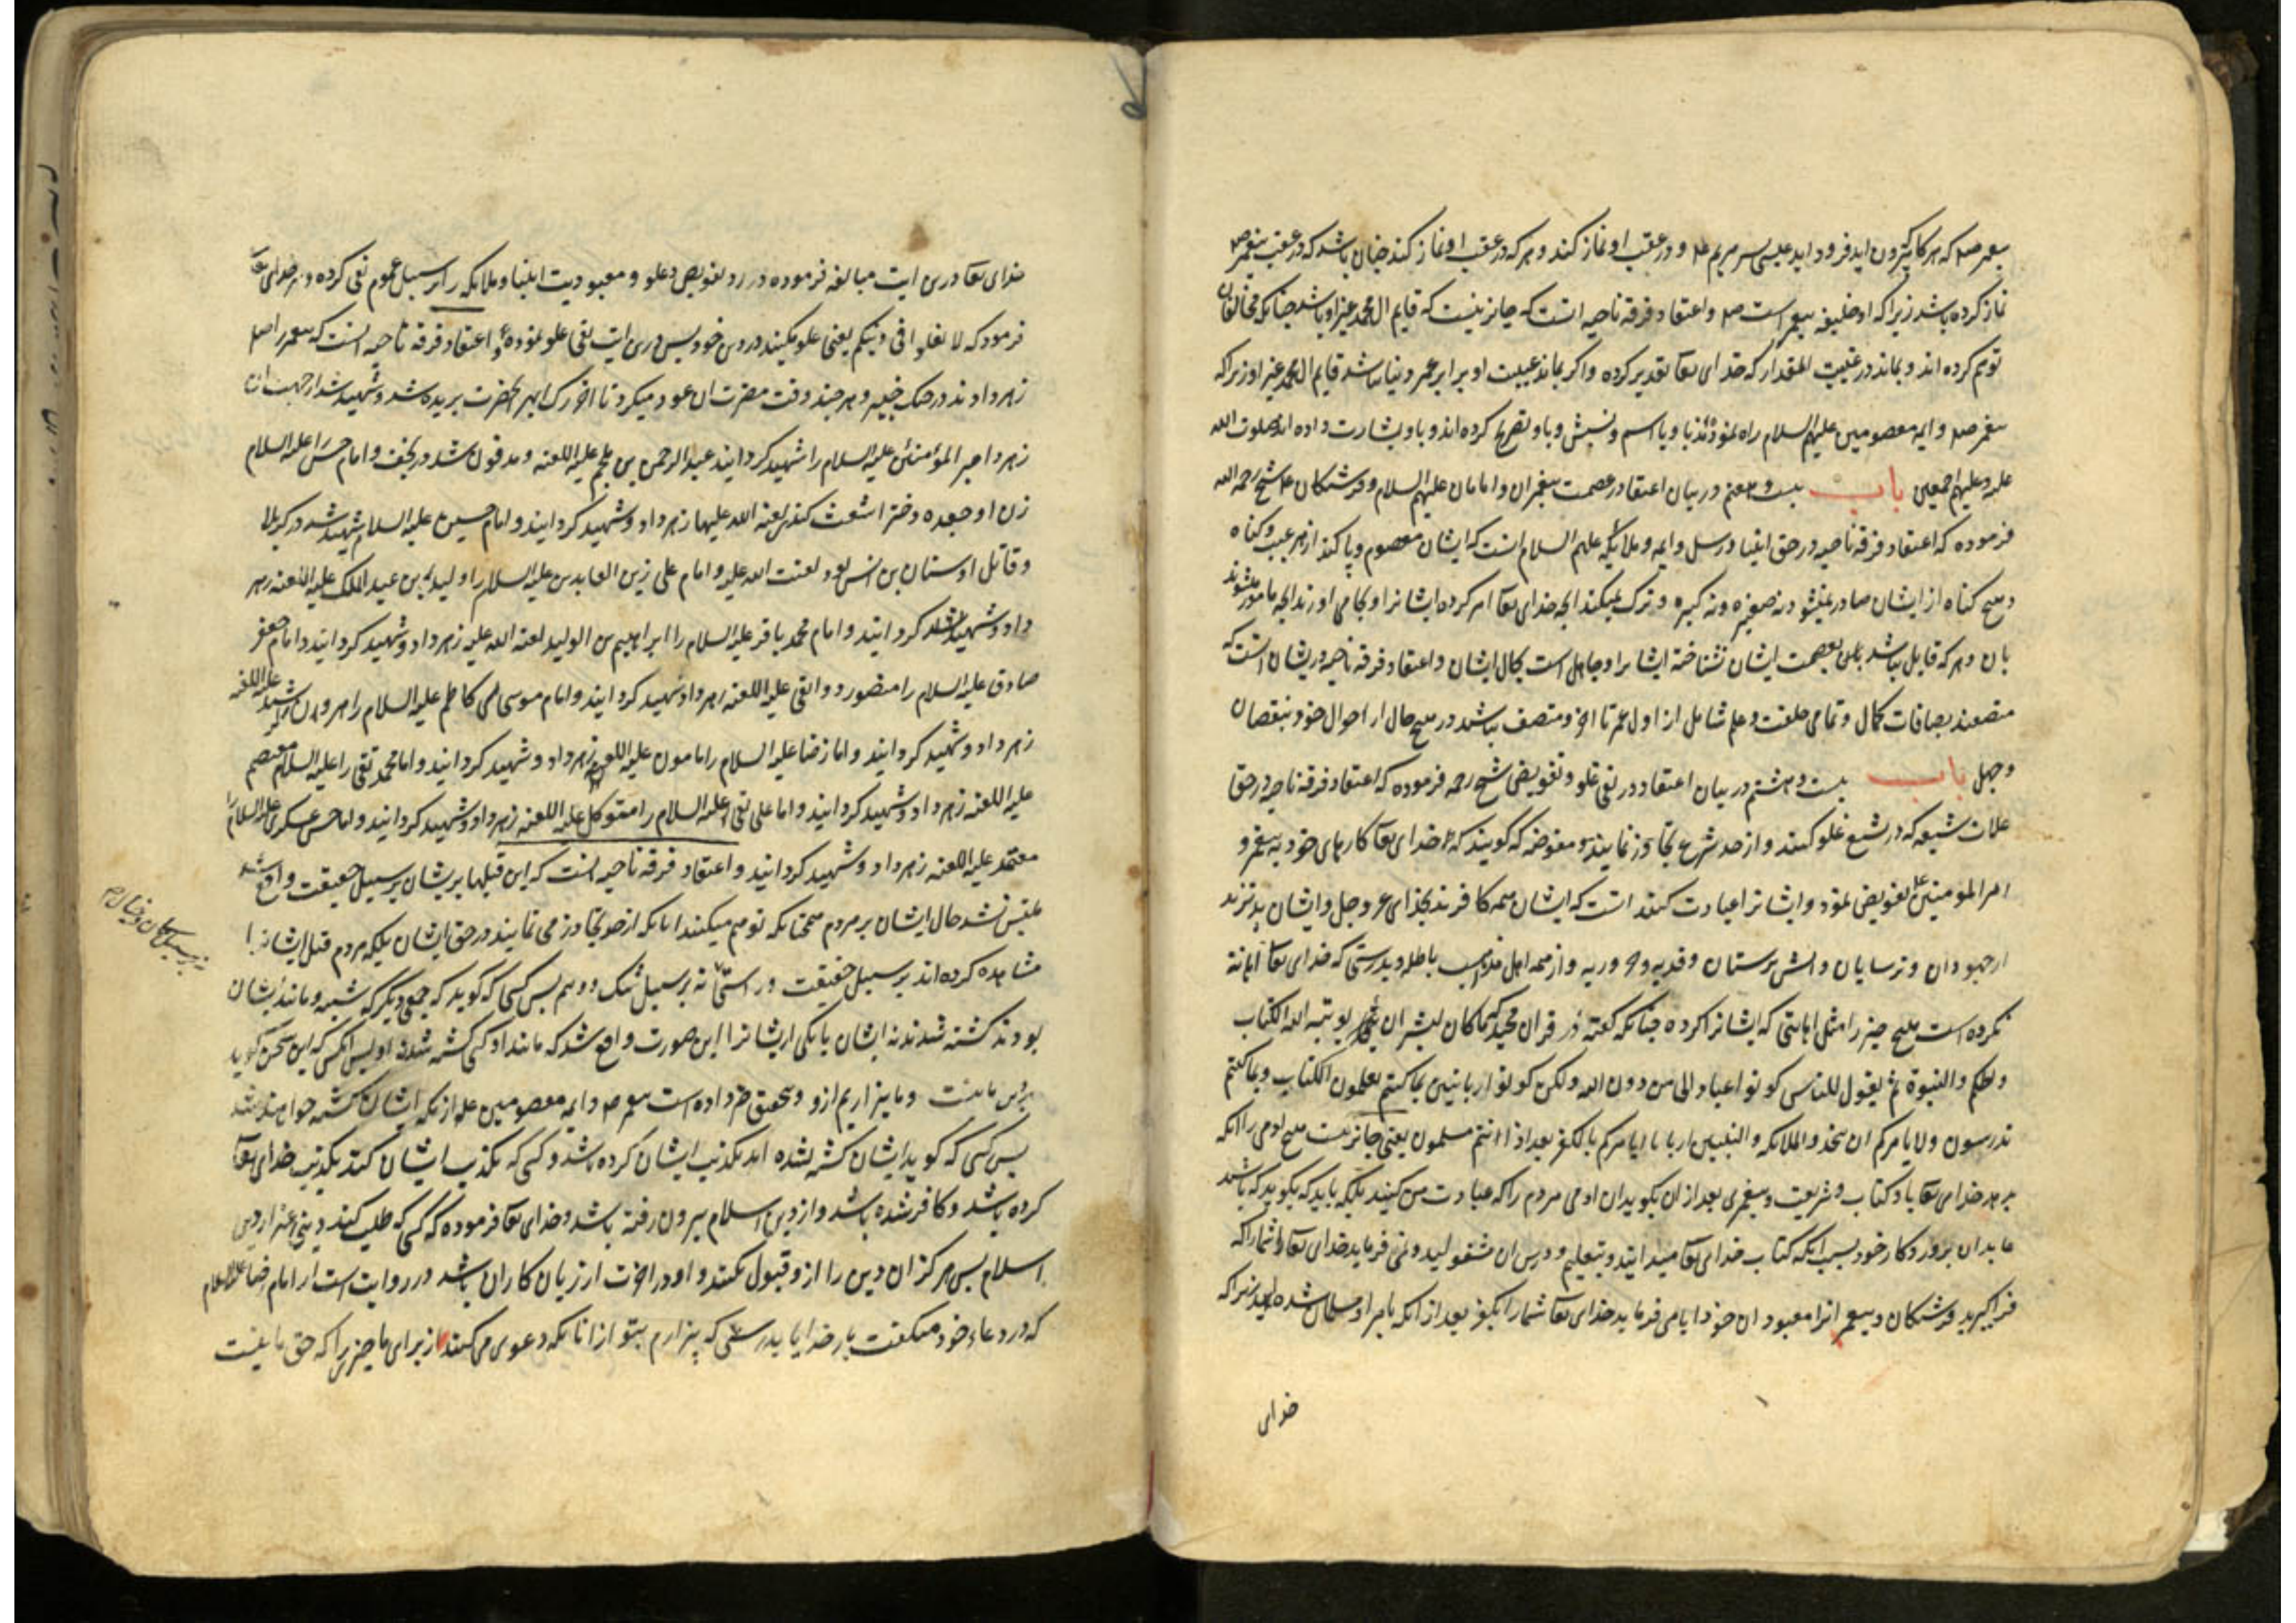 پیغمبر صلم که هرگاه بیرون آید فرود آید عیسی پسر مریم ع م و در عقب او نماز کند و هر که در عقب او نماز کند چنان باشد که در عقب پیغمبر صلم
نماز کرده باشد زیرا که او خلیفه پیغمبر است صلم و اعتقاد فرقه ناجیه انست که جایز نیست که قایم ال محمد غیر او باشد چنانکه مخالفان
توهم کرده اند و بماند در غیبت انمقدار که خدای تعآ تقدیر کرده و اگر بماند غیبت او برابر عمر دنیا نباشد قایم ال محمد غیر او زیرا که
پیغمبر صلم و ایمه معصومین علیهم السلام راه نموده اند باو باسم و نسبش و باو تصریح کرده اند و باو بشارت داده اند صلوت الله
علیه و علیهم اجمعین باب بیست و هفتم در بیان اعتقاد در عصمت پیغمبران و امامان علیهم السلام و فرشتکان ع م شیخ رحمه الله
فرموده که اعتقاد فرقه ناجیه در حق انبیا و رسل و ایمه و ملائکه علیهم السلام انست که ایشان معصوم و پاکند از هر عیب و کناه
و هیچ کناه از ایشان صادر نمیشود نه صغیره و نه کبیره و ترک نمیکنند انچه خدای تعآ امر کرده ایشانرا و بجا می اورند انچه مامور میشوند
بان و هر که قایل نباشد باین عصمت ایشان نشناخته ایشانرا و جاهل است بکمال ایشان و اعتقاد فرقه ناجیه در یشان انست که
متصفند بصافات کمال و تمامی خلقت و علم شامل از اول عمر تا اخر و متصف نباشند در هیچ حال از احوال خود بنقصان
و جهل باب بیست و هشتم در بیان اعتقاد در نفی غلو و تفویض شیخ رحمه فرموده که اعتقاد فرقه ناجیه در حق
غلات شیعه که در شیع غلو کنند و از حد شرع تجاوز نمایند و مفوضه که گویند که خدای تعآ کارهای خود به پیغمبر و
امیر المومنین تفویض نمود و ایشانرا عبادت کنند انست که ایشان همه کافرند بخدای عز وجل و ایشان بدترند
از جهودان و ترسایان و اتش پرستان و قدریه و حروریه و از همه اهل مذاهب باطله و بدرستی که خدای تعآ اهانة
نکرده است هیچ چیز را مثل اهانتی که ایشانرا کرده چنانکه گفته در قران مجید که ما کان لبشر ان یوتیه الله الکتاب
و الحکم و النبوة ثم یقول للناس کونوا عبادا لی من دون الله و لکن کونوا ربانیین بما کنتم تعلمون الکتاب و بما کنتم
تدرسون ولا یامرکم ان تتخذوا الملائکه والنبیین اربابا ایامرکم بالکفر بعد اذ انتم مسلمون یعنی جایز نیست هیچ ادمی را انکه
بدهد خدای تعآ باو کتاب و شریعت و پیغمبری بعد از ان بکوید ان ادمی مردم را که عبادت من کنید بلکه باید که بکوید که باشید
عابدان پروردکار خود بسبب انکه کتاب خدای تعآ میدانید و بتعلیم و درس ان مشغولید و نمی فرماید خدای تعآ شما را که
فرا کیرید فرشتکان و پیغمبرانرا معبودان خود ایا می فرماید خدای تعآ شما را بکفر بعد از انکه بامر او مسلمان شده اید زیرا که
خدای
خدای تعآ درین ایت مبالغه فرموده در رد تفویض و غلو و معبودیت انبیا و ملایکه را بر سبیل عموم نفی کرده و هم خدای تعآ
فرمود که لا تغلوا فی دینکم یعنی غلو مکنید در دین خود پس درین ایت نفی غلو نموده و اعتقاد فرقه ناجیه انست که پیغمبر را صلم
زهر دادند در جنک خیبر و هر چند وقت مضرت ان عود میکرد تا اخر رک ابهر انحضرت بریده شد و شهید شد از جهت ان
زهر و امیر المؤمنین علیه السلام را شهید کردانید عبد الرحمن بن ملجم علیه اللعنه و مدفون شد در نجف و امام حسن را علیه السلام
زن او جعده دختر اشعث کندی لعنه الله علیها زهر داد و شهید کردانید و امام حسین علیه السلام شهید شد در کربلا
و قاتل او سنان بن انس بود لعنت الله علیه و امام علی زین العابدین علیه السلام را ولید بن عبد الملک علیه اللعنه زهر
داد و شهید کردانید و امام محمد باقر علیه السلام را ابراهیم بن الولید لعنه الله علیه زهر داد و شهید کردانید و امام جعفر
صادق علیه السلام را منصور دوانقی علیه اللعنه زهر داد شهید کردانید و امام موسی کاظم علیه السلام را هرون رشید علیه اللعنه
زهر داد و شهید کردانید و امام رضا علیه السلام را مامون علیه اللعنه زهر داد و شهید کردانید و امام محمد تقی را علیه السلام معتصم
علیه اللعنه زهر داد و شهید کردانید و امام علی نقی علیه السلام را متوکل علیه اللعنه زهر داد و شهید کردانید و امام حسن عسکری علیه السلام را
معتمد علیه اللعنه زهر داد و شهید کردانید و اعتقاد فرقه ناجیه انست که این قتلها بریشان بر سبیل حقیقت واقع شد
ملتبس نشد حال ایشان بر مردم همچنانکه توهم میکنند انانکه از حد تجاوز می نمایند در حق ایشان بلکه مردم قتل ایشانرا
نه بر سبیل کمان و خیال
مشاهده کرده اند بر سبیل حقیقت و راستی نه بر سبیل شک و وهم پس کسی که گوید که جمعی دیگر که شبیه و مانند یشان
بودند کشته شدند نه ایشان یا یکی از یشانرا این صورت واقع شد که مانند او کسی کشته شد نه او پس انکس که این سخن گوید
بر دین ما نیست و ما بیزاریم ازو و بتحقیق خبر داده است پیغمبر صلم و ایمه معصومین علیه از نکه ایشان کشته خواهند شد
پس کسی که گوید ایشان کشته نشده اند تکذیب ایشان کرده باشد و کسی که تکذیب ایشان کند تکذیب خدای تعآ
کرده باشد و کافر شده باشد و از دین اسلام بیرون رفته باشد و خدای تعآ فرموده که کسی که طلب کند دینی غیر از دین
اسلام پس هرکز ان دین را ازو قبول نکنند و او در اخرت از زیان کاران باشد و در روایت است از امام رضا علیه السلام
که در دعاء خود میکفت بار خدایا بدرستی که بیزارم بتو از انانکه دعوی می کنند از برای ما چیزی را که حق ما نیست